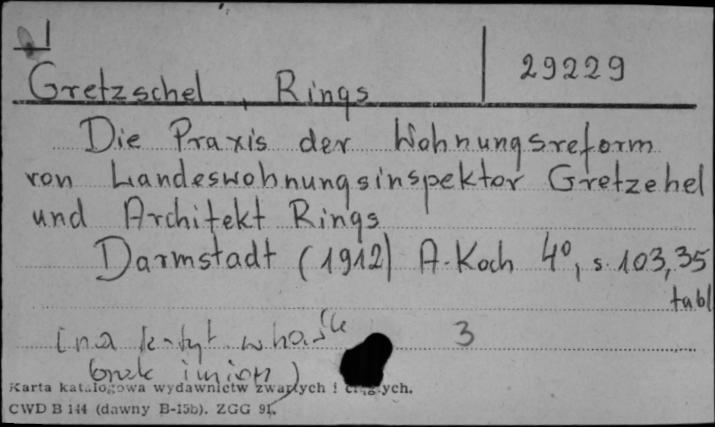 1
Gretzschel, Rings
29229
Die Praxis der Wohnungsreform
von Landeswohnungsinspektor Gretzehel
und Architekt Rings
Darmstadt (1912) A. Koch 4º, s. 103, 35
tabl
3
(brak imion)
Karta katalogowa wydawnictw zwartych i ciągłych.
CWD B 144 (dawny B-15b). ZGG 91.